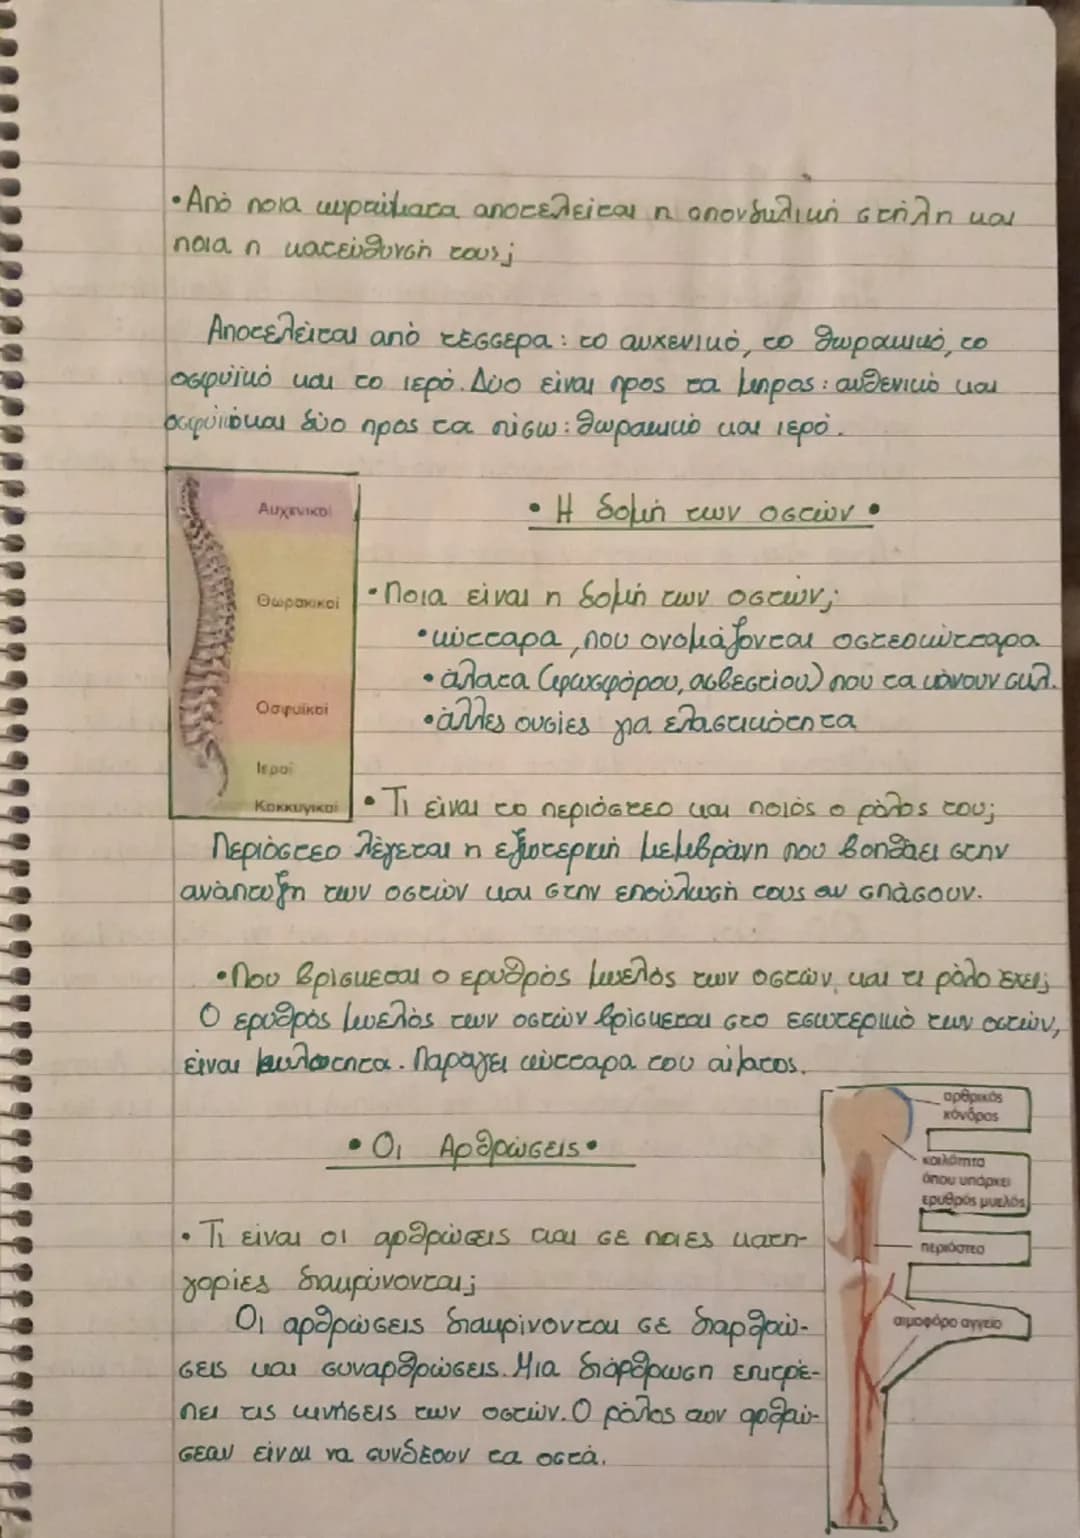 • Από ποια κυρτώματα αποτελείται η σπονδυλική στήλη και
ποια η κατεύθυνσή τους;
Αποτελείται από τέσσερα: το αυχενικό, το θωρακικό, το
οσφυϊκό και το ιερό. Δύο είναι προς τα μπρος: αυθενικό και
οσφυϊκό και δύο προς τα πίσω: θωρακικό και ιερό.
Αυχενικοί
Θωρακικοί
Οσφυϊκοί
Ιεροί
Κοκκυγικοί
• Η δομή των οστών •
• Ποια είναι η δομή των οστών;
• κύτταρα, που ονομάζονται οστεοκύτταρα
• άλατα (φωσφόρου, ασβεστίου) που τα κάνουν σκλ.
• άλλες ουσίες για ελαστικότητα
• Τι είναι το περιόστεο και ποιός ο ρόλος του;
Περιόστεο λέγεται η εξωτερική μεμβράνη που βοηθάει στην
ανάπτυξη των οστών και στην επούλωσή τους αν σπάσουν.
• Που βρίσκεται ο ερυθρός μυελός των οστών, και τι ρόλο έχει;
Ο ερυθρός μυελός των οστών βρίσκεται στο εσωτερικό των οστών,
είναι κοιλότητα. Παράγει κύτταρα του αίματος.
• Οι Αρθρώσεις •
• Τι είναι οι αρθρώσεις και σε ποιες κατη-
γορίες διακρίνονται;
Οι αρθρώσεις διακρίνονται σε διαρθρώ-
σεις και συναρθρώσεις. Μια διάρθρωση επιτρέ-
πει τις κινήσεις των οστών. Ο ρόλος των αρθρώ-
σεων είναι να συνδέουν τα οστά.
αρθρικός
χόνδρος
κοιλότητα
όπου υπάρχει
ερυθρός μυελός
περιόστεο
αιμοφόρο αγγείο